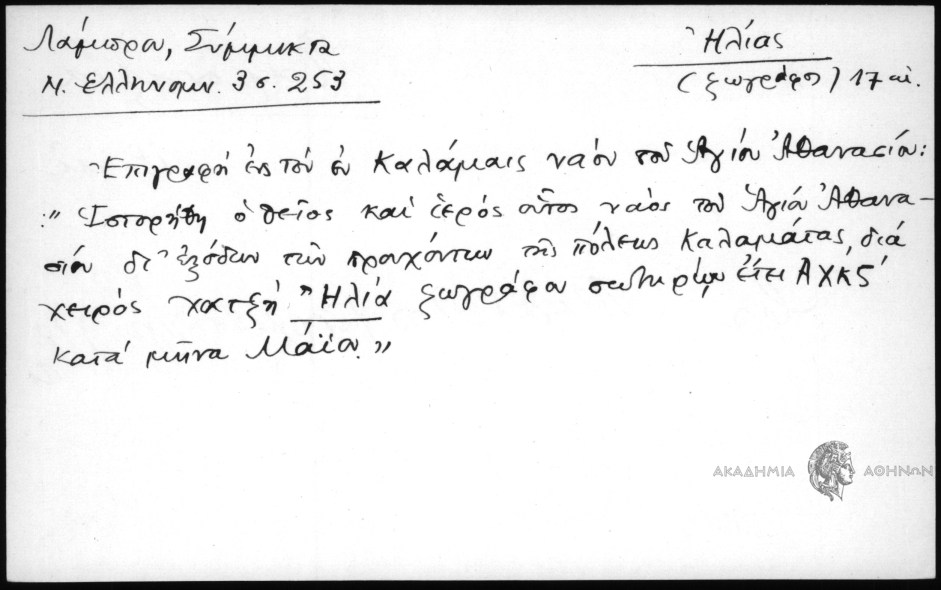 Λάμπρου, Σύμμικτα
Ν. Ελληνομν. 3 σ. 253
Ἠλίας
(ζωγράφος) 17 αἰ.
Ἐπιγραφή εἰς τόν ἐν Καλάμαις ναόν τοῦ Ἁγίου Ἀθανασίου:
"Ἱστορήθη ὁ θεῖος καί ἱερός οὗτος ναός τοῦ Ἁγίου Ἀθανα-
σίου δι' ἐξόδων τῶν προυχόντων τῆς πόλεως Καλαμάτας, διά
χειρός χατζή Ἠλία ζωγράφου σωτηρίῳ ἔτει ΑΧΚϚ'
κατά μῆνα Μάϊον."
ΑΚΑΔΗΜΙΑ ΑΘΗΝΩΝ